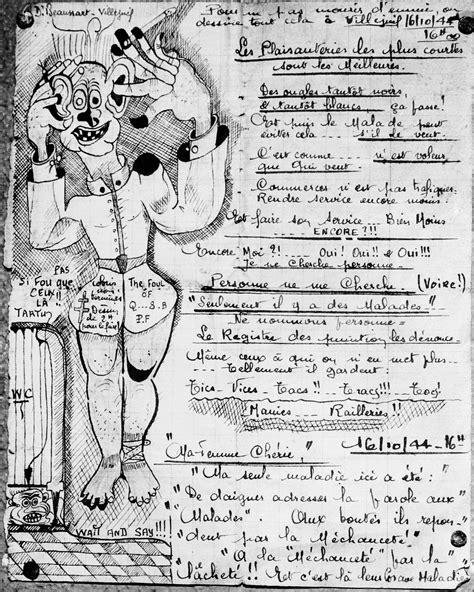 D. Beaussart - Villejuif
Pour ne pas mourir d'ennui, on
dessine tout cela à Villejuif 16/10/44
16H
Les Plaisanteries les plus courtes
sont les Meilleures.
Des ongles tantôt noirs
& tantôt blancs ça passe!
Et puis le Malade peut
éviter cela ..... s'il le veut.
C'est comme .... n'est voleur
que qui veut.
Commerces n'est pas trafiques.
Rendre service encore moins.
Et faire son service ... Bien Moins
ENCORE ?!!
Encore Moi ?!... Oui! Oui!! & Oui!!!
Je ne Cherche personne
Personne ne me Cherche. (Voire!)
"Seulement il y a des Malades"
Ne nommons personne =
Le Registre des punitions les dénonce
Même ceux à qui on n'en met plus
Tellement il gardent:
Tics - Vices - Tacs!! .... Tracs!!! ... Tocs!
Manies .... Railleries!!
PAS
SI FOU QUE
CEUX !!
LÀ
TARTUS
The Foul
OF
Q...S.B
P.F
WC
WAIT AND SAY!!!
16/10/44 - 16H
"Ma Femme Chérie,"
"Ma seule maladie ici a été:"
"De daignes adresses la parole aux"
"Malades". Aux boutés ils repon-"
"dent par la Méchanceté"
"A la "Méchanceté" par "la"
"lâcheté!! Et c'est là leur Maladie